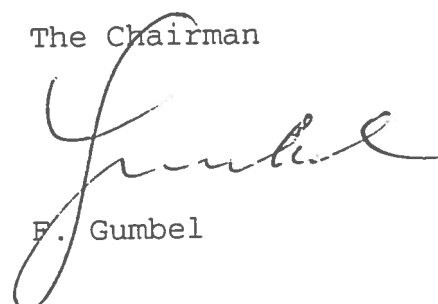 The Chairman
Gumbel